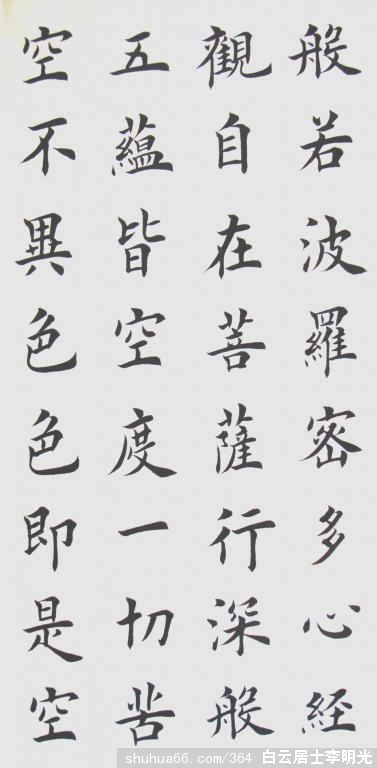 般若波羅密多心経
觀自在菩薩行深般
五蘊皆空度一切苦
空不異色色即是空
shuhua66.com/364 白云居士李明光